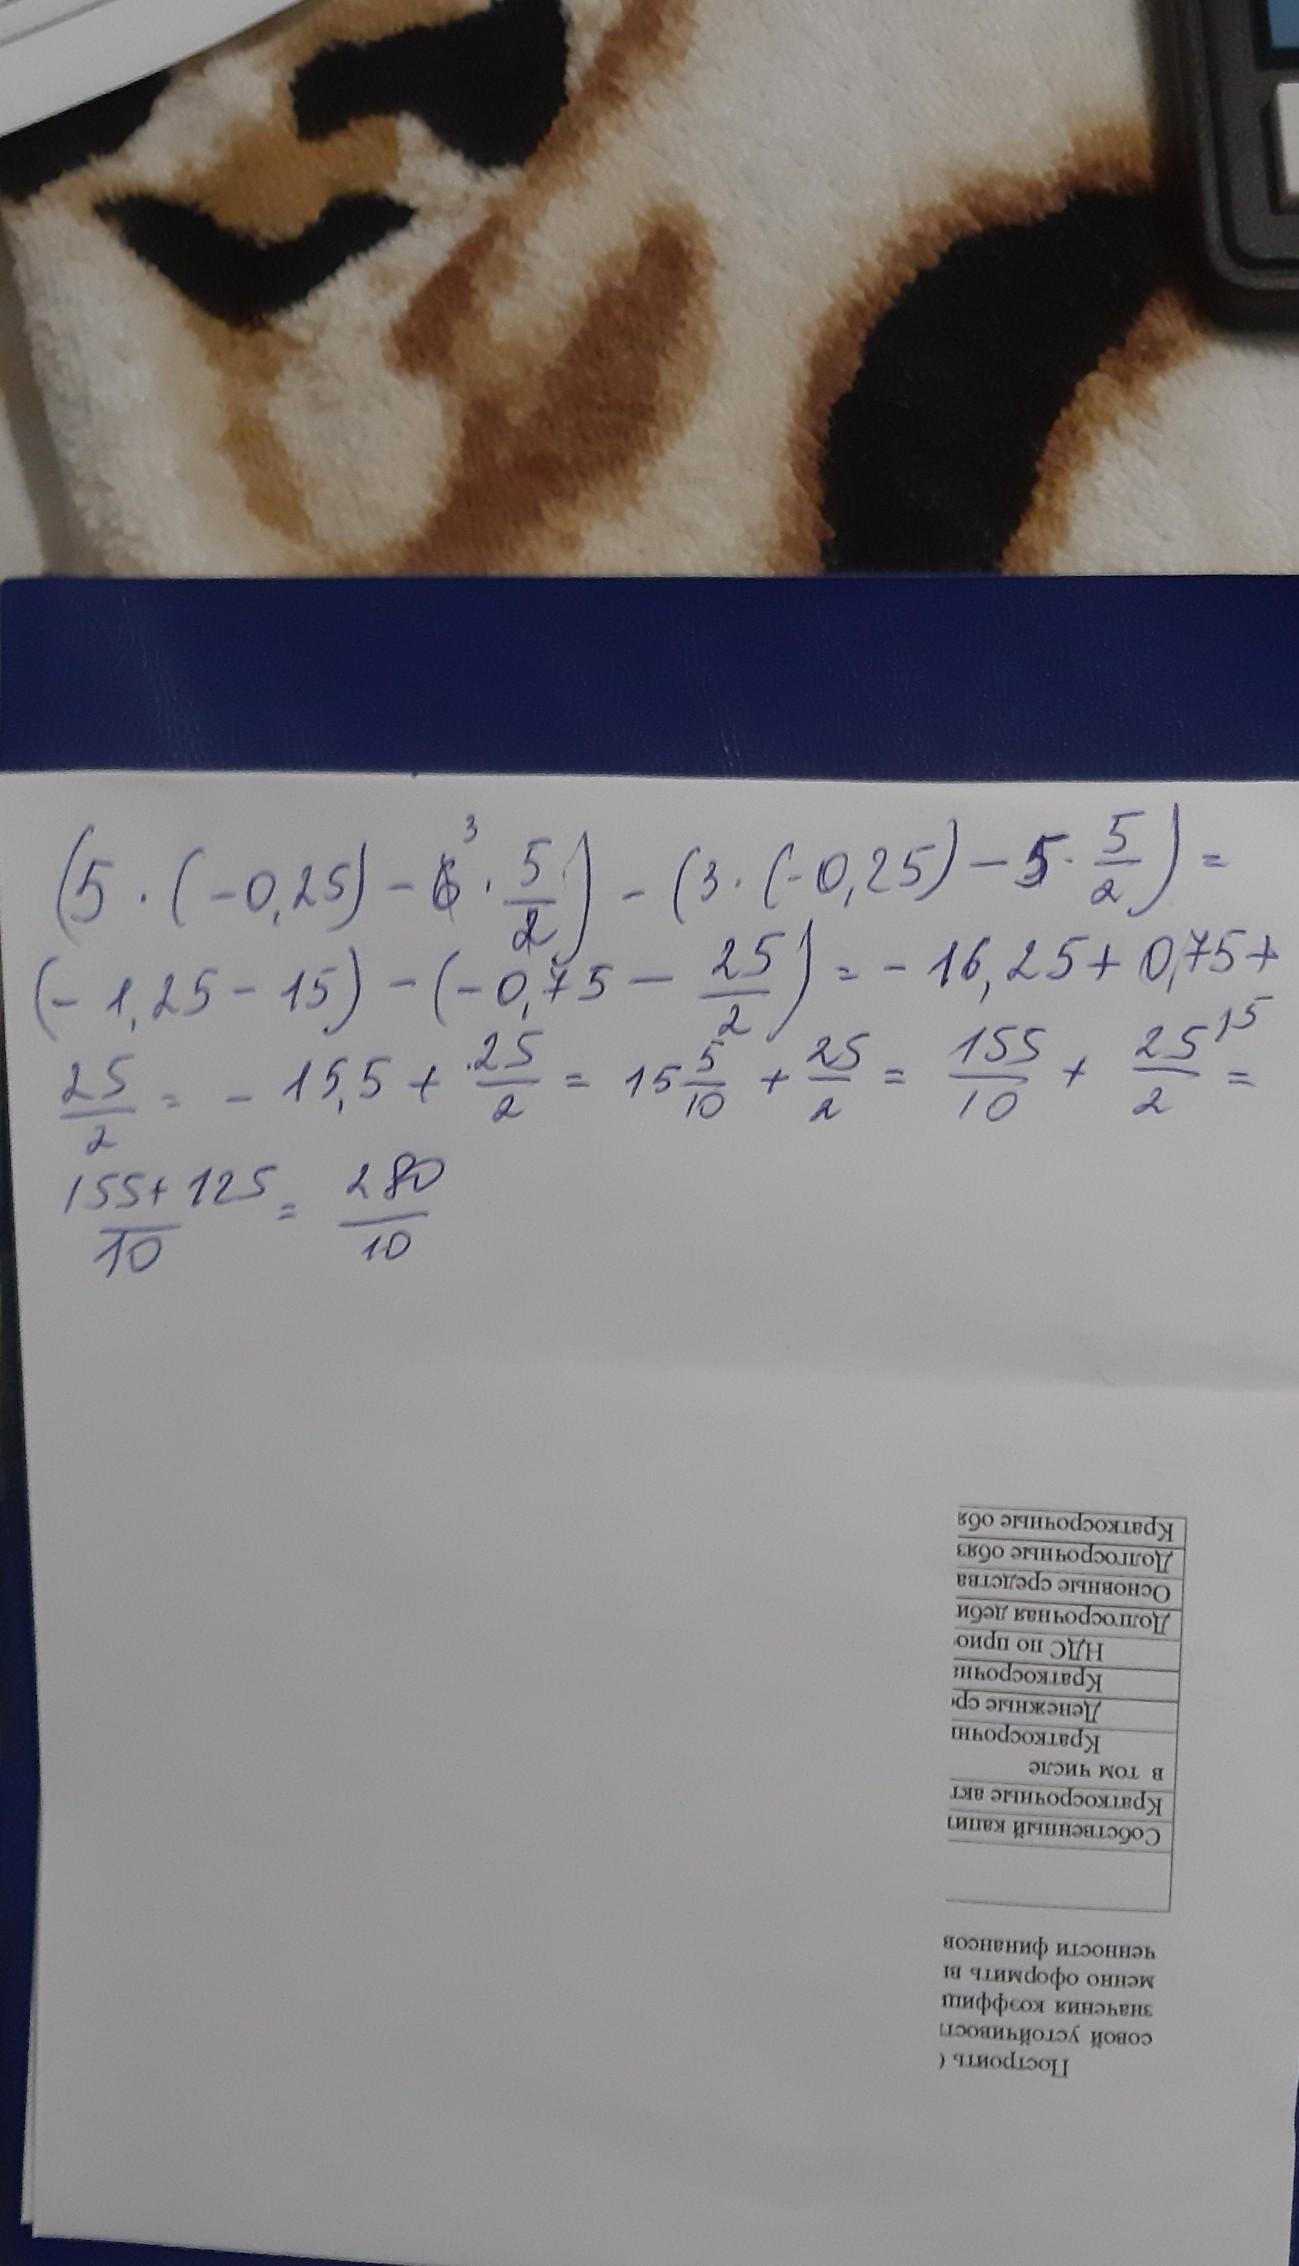 (5 · (-0,25) - 6³ · 5/2) - (3 · (-0,25) - 5 · 5/2) =
(- 1,25 - 15) - (-0,75 - 25/2) = - 16,25 + 0,75 +
25/2 = - 15,5 + 25/2 = 15 5/10 + 25/2 = 155/10 + 25/2 ^15 =
155 + 125/10 = 280/10
Построить (
совой устойчивост
значения коэффиц
менно оформить в
ченности финансов
Собственный капит
Краткосрочные акт
в том числе
Краткосрочн
Денежные ср
Краткосрочн
НДС по прио
Долгосрочная деби
Основные средства
Долгосрочные обяз
Краткосрочные обя